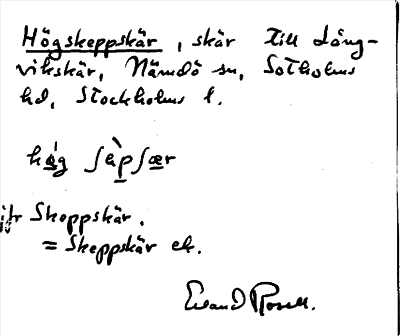 Högskeppskär, skär till Lång-
vikskär, Nämdö sn, Sotholms
hd, Stockholms l.
hø̀g ʃæ̀pʃær
jfr Skeppskär.
= Skeppskär ek.
Evand Rosell.